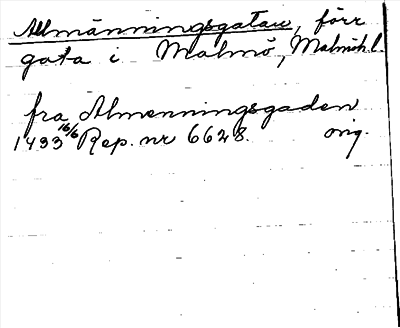 Allmänningsgatan, förr
gata i Malmö, Malmöh l.
fra Almenningsgaden
1493 16/6 Rep. nr 6628. orig.